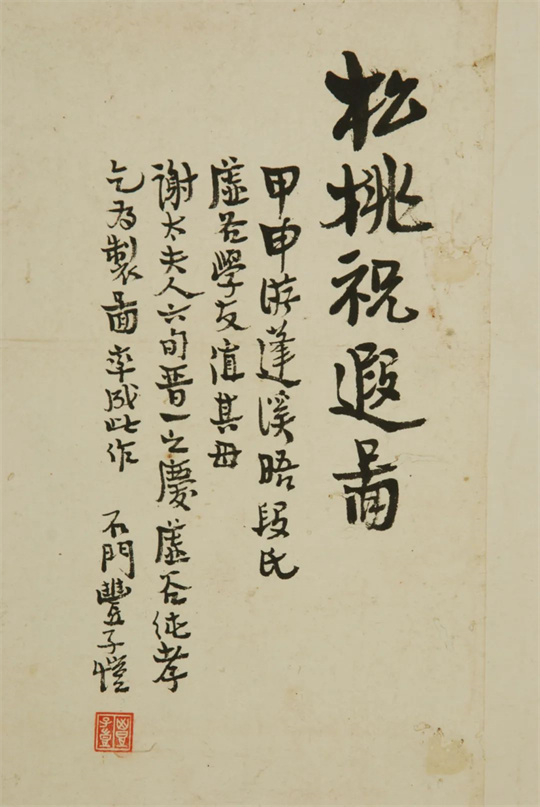 松桃祝遐啚
甲申游蓬溪晤段氏
虛谷學友值其母
謝太夫人六旬晋一之慶虛谷純孝
乞為製啚率成此作
石門豐子愷
豐子愷